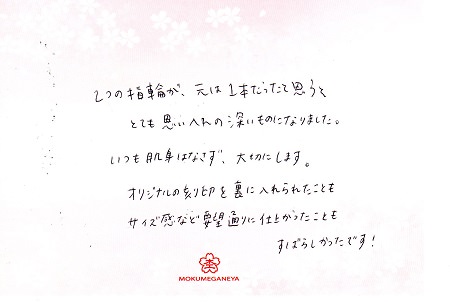 2つの指輪が、元は1本だったと思うと
とても思い入れの深いものになりました。
いつも肌身はなさず、大切にします。
オリジナルの刻印を裏に入れられたことも
サイズ感など要望通りに仕上がったことも
すばらしかったです!
MOKUMEGANEYA